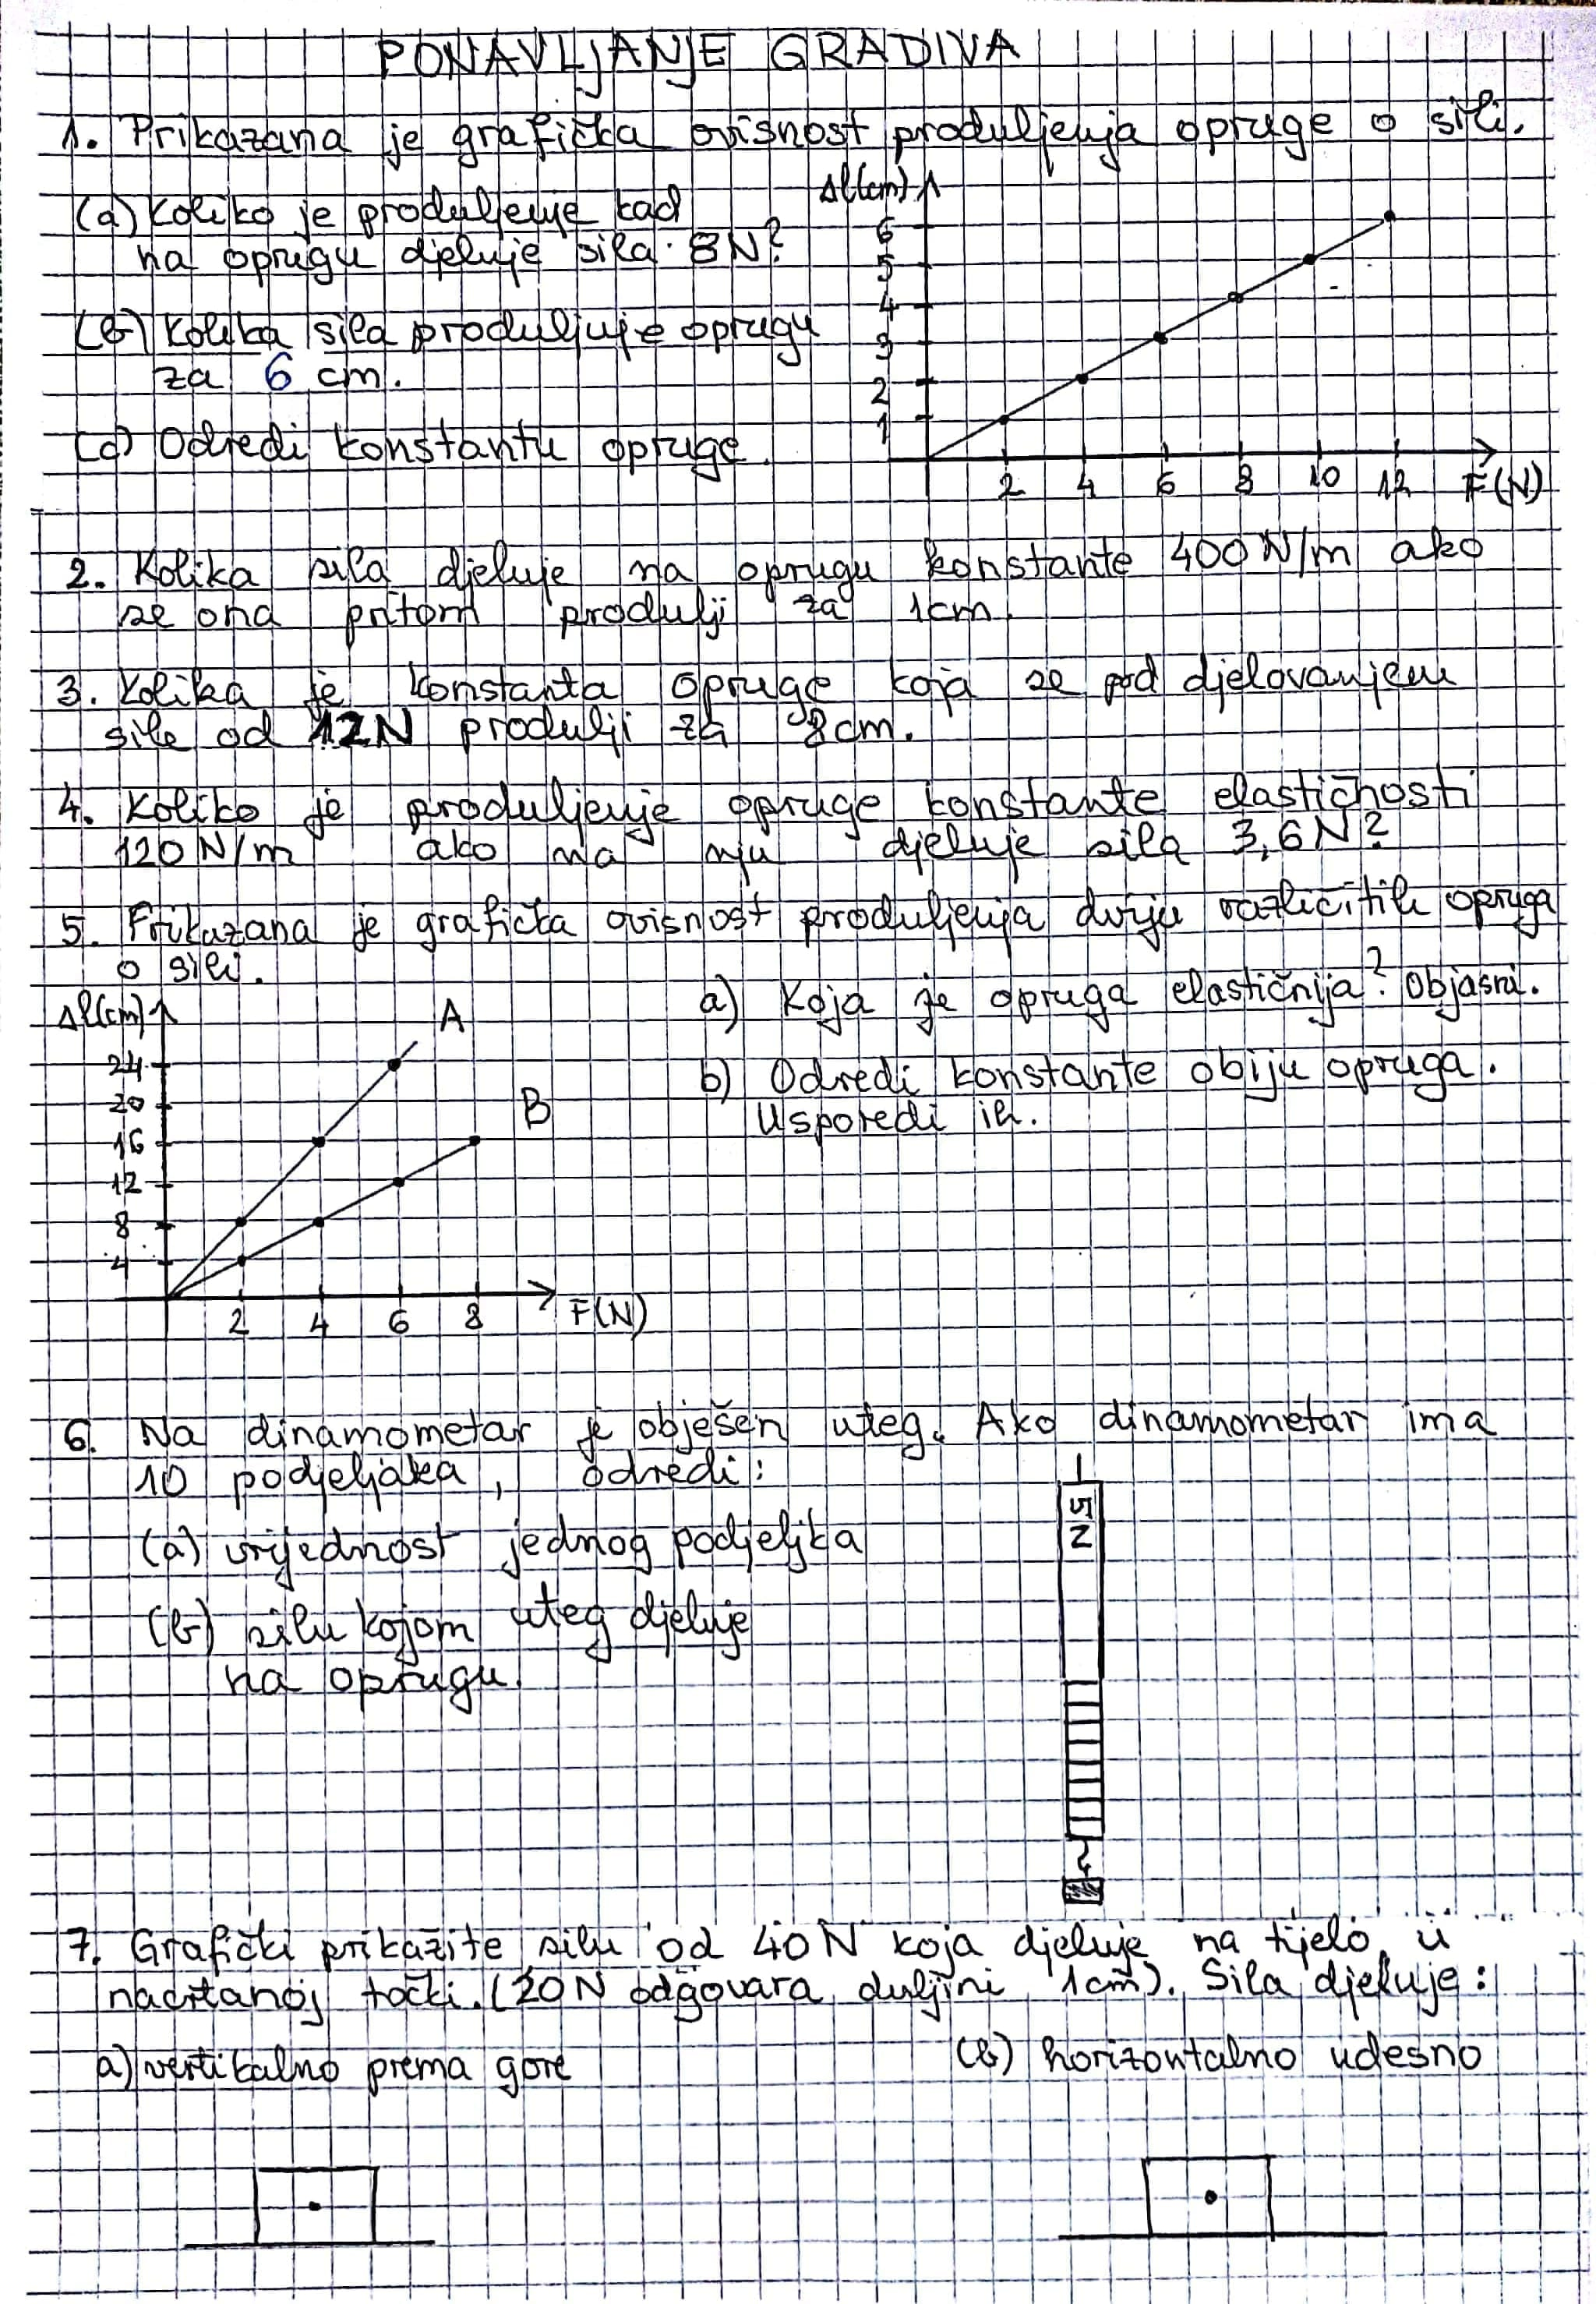 PONAVLJANJE GRADIVA
1. Prikazana je grafička ovisnost produljenja opruge o sili.
(a) Koliko je produljenje kad
na oprugu djeluje sila 8N?
(b) Kolika sila produljuje oprugu
za 6 cm.
(c) Odredi konstantu opruge.
Δl(cm)
6
5
4
3
2
1
2 4 6 8 10 12 F(N)
2. Kolika sila djeluje na oprugu konstante 400 N/m ako
se ona pritom produlji za 1cm.
3. Kolika je konstanta opruge koja se pod djelovanjem
sile od 12N produlji za 8cm.
4. Koliko je produljenje opruge konstante elastičnosti
120 N/m ako na nju djeluje sila 3,6N?
5. Prikazana je grafička ovisnost produljenja dviju različitih opruga
o sili.
a) Koja je opruga elastičnija? Objasni.
b) Odredi konstante obiju opruga.
Usporedi ih.
Δl(cm)
A
24
B
20
16
12
8
4
2 4 6 8 F(N)
6. Na dinamometar je obješen uteg. Ako dinamometar ima
10 podjeljaka, odredi:
(a) vrijednost jednog podjeljka
(b) silu kojom uteg djeluje
na oprugu.
5N
7. Grafički prikažite silu od 40N koja djeluje na tijelo u
nacrtanoj točki. (20N odgovara duljini 1cm). Sila djeluje:
a) vertikalno prema gore
(b) horizontalno udesno